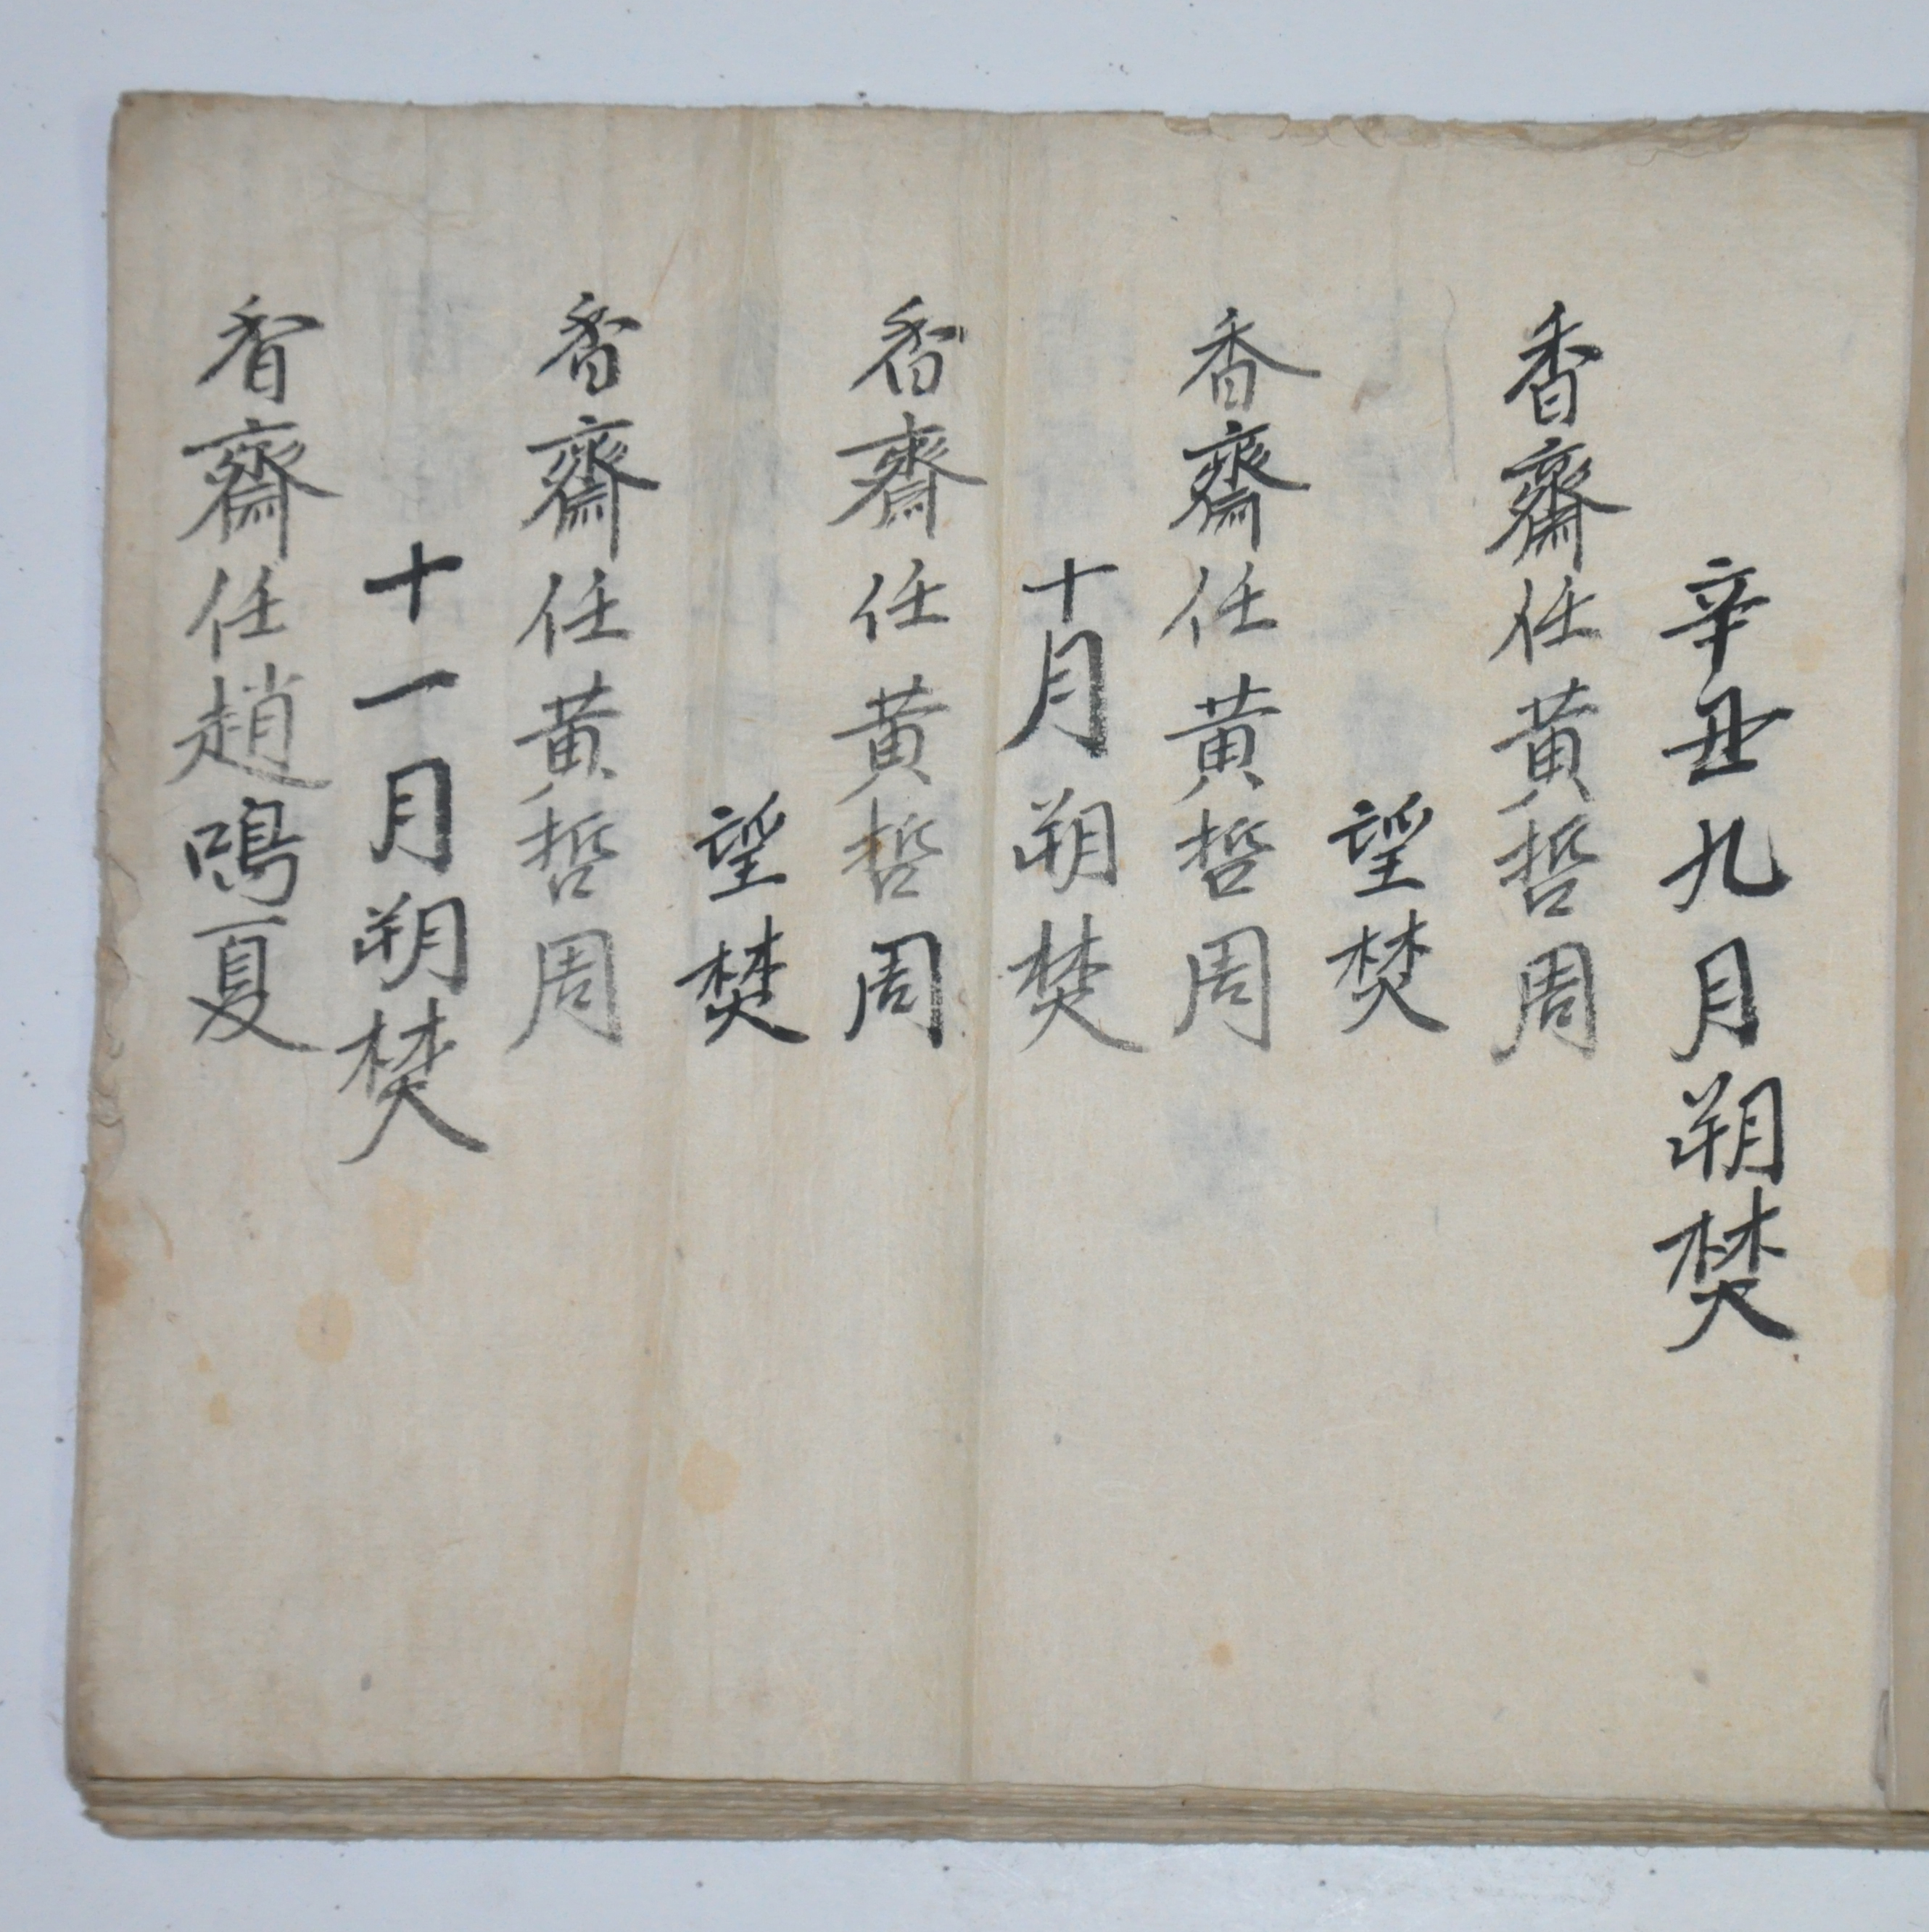 辛丑九月朔焚
香齋任黃哲周
望焚
香齋任黃哲周
十月朔焚
香齋任黃哲周
望焚
香齋任黃哲周
十一月朔焚
香齋任趙鳴夏